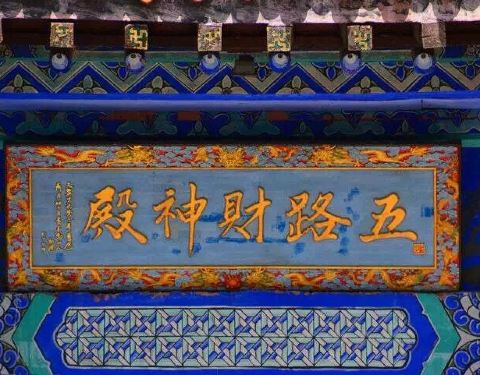 五路財神殿